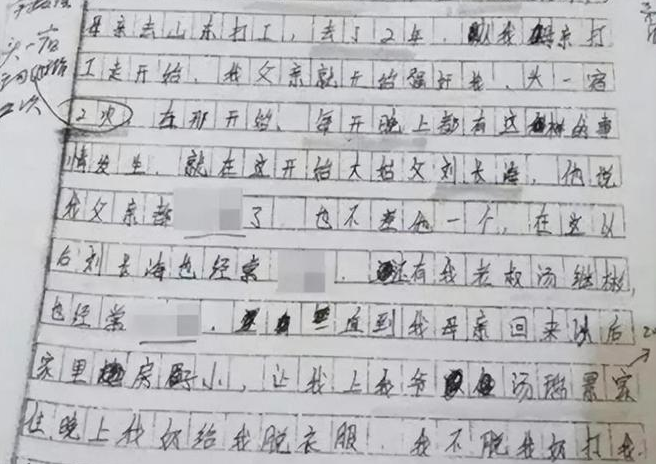 母亲去山东打工，去了2年，从我母亲打
工走开始，我父亲就开始强奸我，头一宿
2次，在那开始，每开晚上都有这样的事
情发生，就在这开始大姑父刘长海，他说
我父亲都了，也不差他一个，在这以
后刘长海也经常，还有我老叔汤继彬，
也经常，一直到我母亲回来以后
家里房子小，让我上我爷汤瑞景家
住晚上我奶给我脱衣服，我不脱我奶打我
头一宿
2次